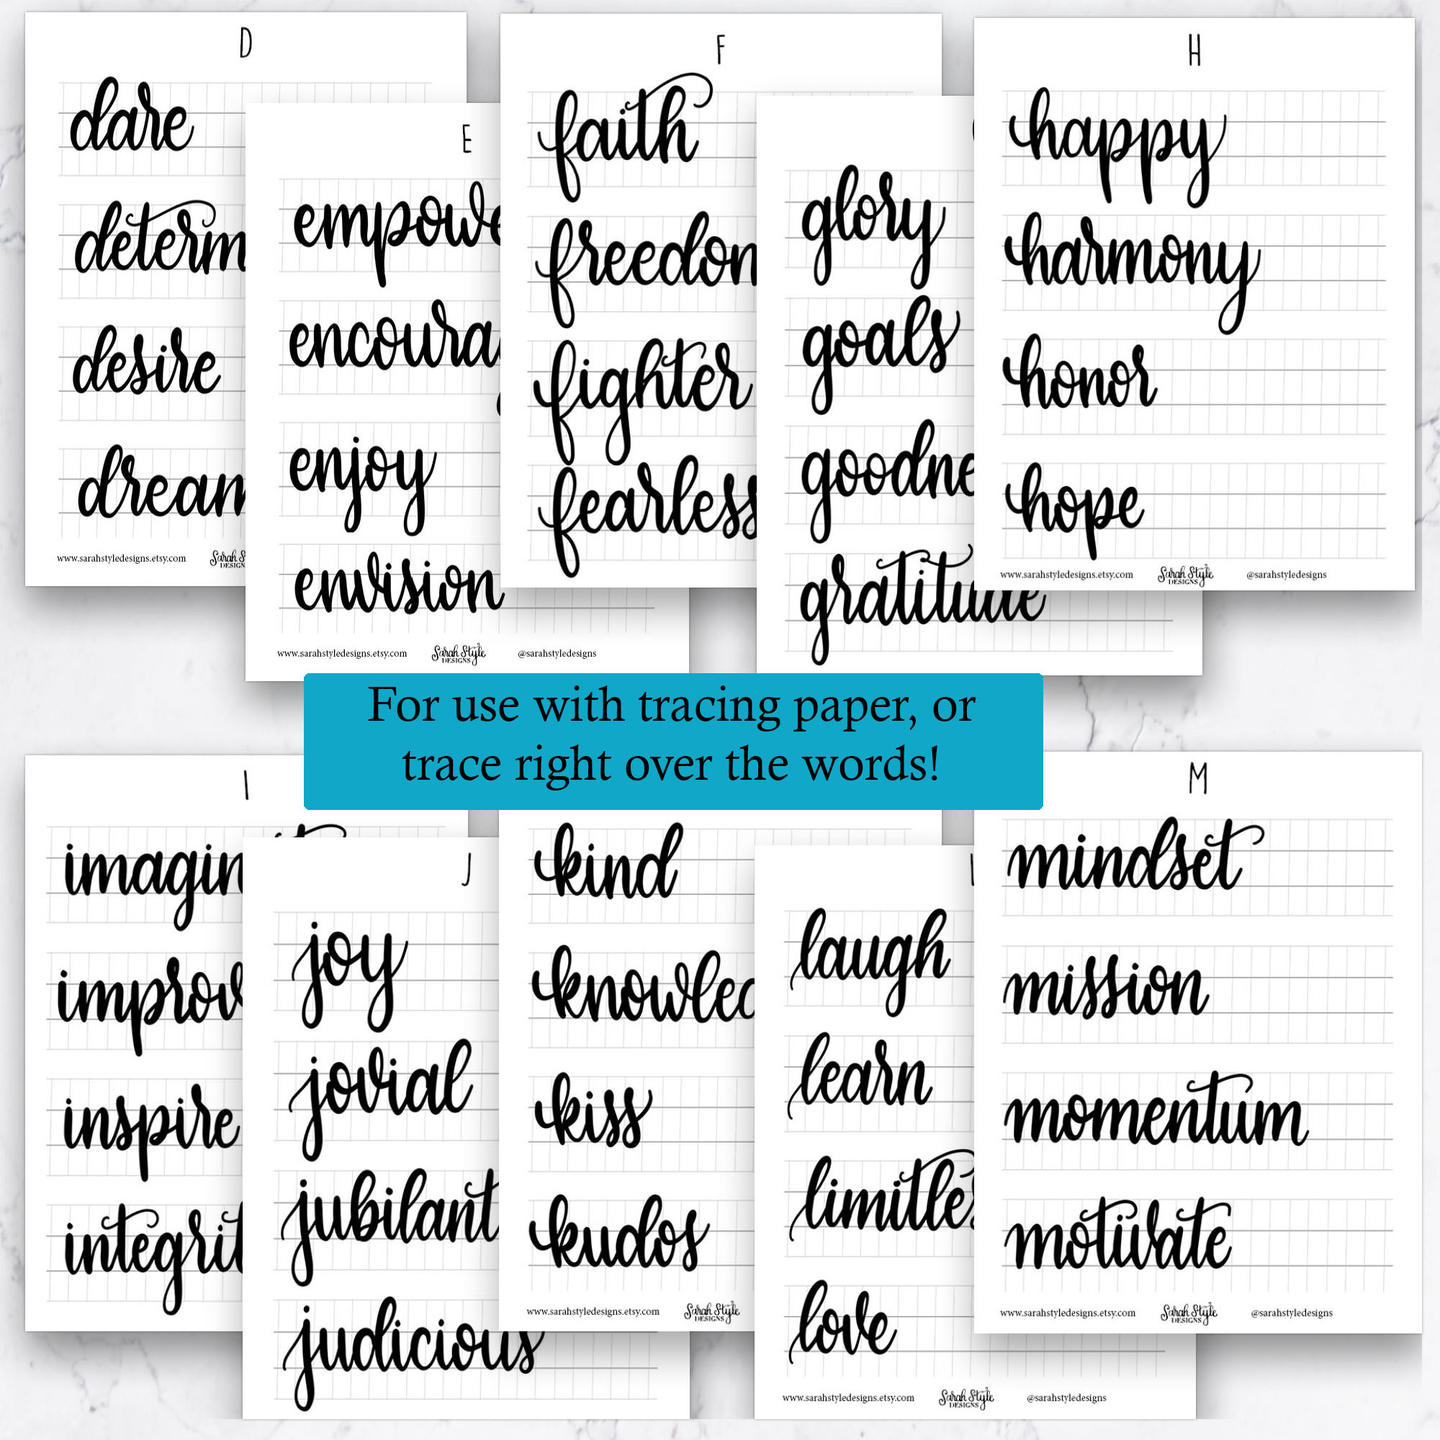 D
dare
desire
www.sarahstyledesigns.etsy.com
E
enjoy
envision
www.sarahstyledesigns.etsy.com Sarah Style DESIGNS @sarahstyledesigns
F
faith
fighter
fearless
glory
goals
gratitude
H
happy
harmony
honor
hope
www.sarahstyledesigns.etsy.com Sarah Style DESIGNS @sarahstyledesigns
For use with tracing paper, or
trace right over the words!
I
inspire
J
joy
jovial
jubilant
judicious
kind
kiss
kudos
www.sarahstyledesigns.etsy.com Sarah Style DESIGNS
laugh
learn
love
www.sarahstyledesigns.etsy.com Sarah Style DESIGNS @sarahstyledesigns
M
mindset
mission
momentum
motivate
www.sarahstyledesigns.etsy.com Sarah Style DESIGNS @sarahstyledesigns